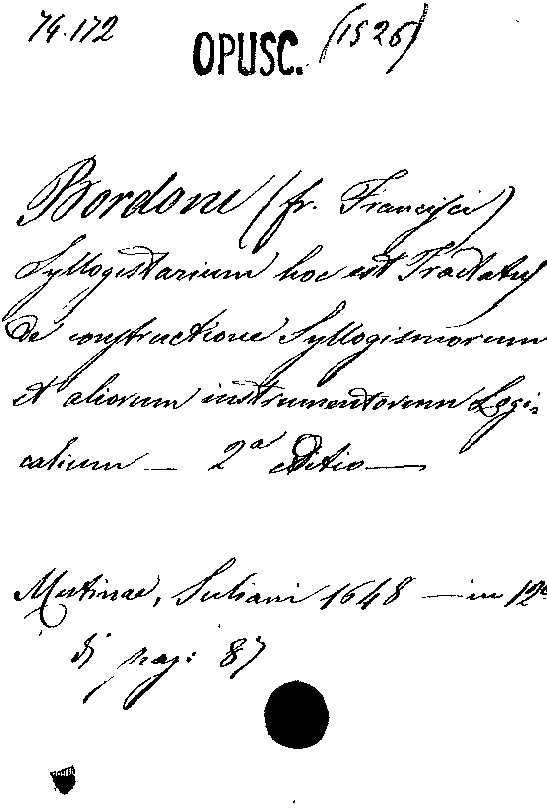 74.172 OPUSC. (1526)
Bordoni (fr. Francisci)
Syllogistarium hoc est Tractatus
de constructione Syllogismorum
et aliorum instrumentorum Logi-
calium — 2ª editio —
Mutinae, Suliani 1648 — in 12º
di pag: 87